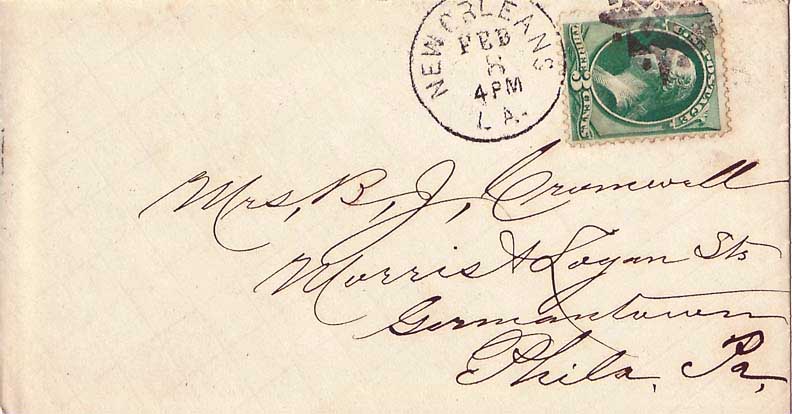 NEW ORLEANS
FEB
8
4 PM
LA.
U.S. POSTAGE
THREE 3 CENTS
Mrs, B, J, Cromwell
Morris & Logan Sts
Germantown
Phila, Pa,